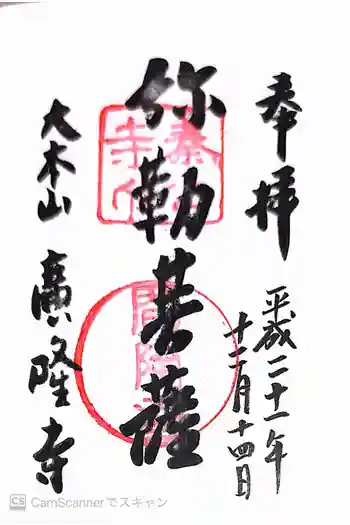 奉拝
平成二十一年
十二月十四日
弥勒菩薩
大本山
廣隆寺
CS CamScannerでスキャン